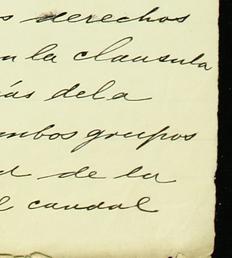 s derechos
n la clausula
ás dela
ambos grupos
d de la
l caudal